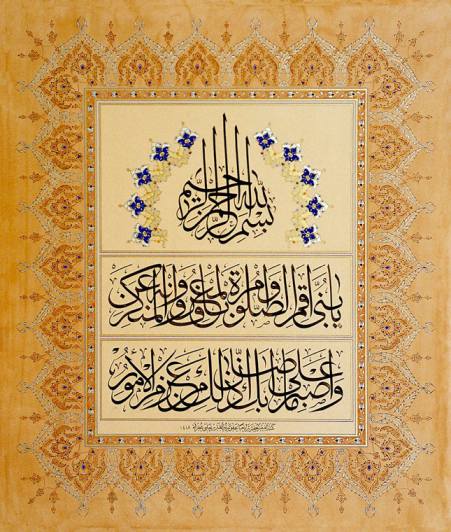 بسم الله الرحمن الرحيم
يَابُنَيَّ أَقِمِ الصَّلَوٰةَ وَأْمُرْ بِالْمَعْرُوفِ وَانْهَ عَنِ الْمُنكَرِ
وَاصْبِرْ عَلَىٰ مَا أَصَابَكَ إِنَّ ذَٰلِكَ مِنْ عَزْمِ الْأُمُورِ
١٤١٨